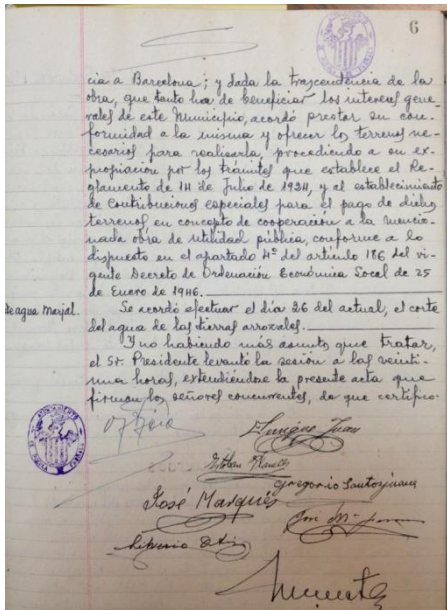 6
cia a Barcelona; y dada la trascendencia de la
obra, que tanto ha de beneficiar los intereses gene-
rales de este Municipio, acordó prestar su con-
formidad a la misma y ofrecer los terrenos ne-
cesarios para realizarla, procediendo a su ex-
propiación por los trámites que establece el Re-
glamento de 14 de Julio de 1924, y al establecimiento
de Contribuciones especiales para el pago de dichos
terrenos en concepto de cooperación a la mencio-
nada obra de utilidad pública, conforme a lo
dispuesto en el apartado 4º del artículo 186 del vi-
gente Decreto de Ordenación Económica Local de 25
de Enero de 1946.
te agua Marjal.
Se acordó efectuar el día 26 del actual, el corte
del agua de las tierras arrozales.
Y no habiendo más asuntos que tratar,
el Sr. Presidente levantó la sesión a las veinti-
una horas, extendiéndose la presente acta que
firman los señores concurrentes, de que certifico.
Enrique Juan
Esteban
Gregorio
José Marqués